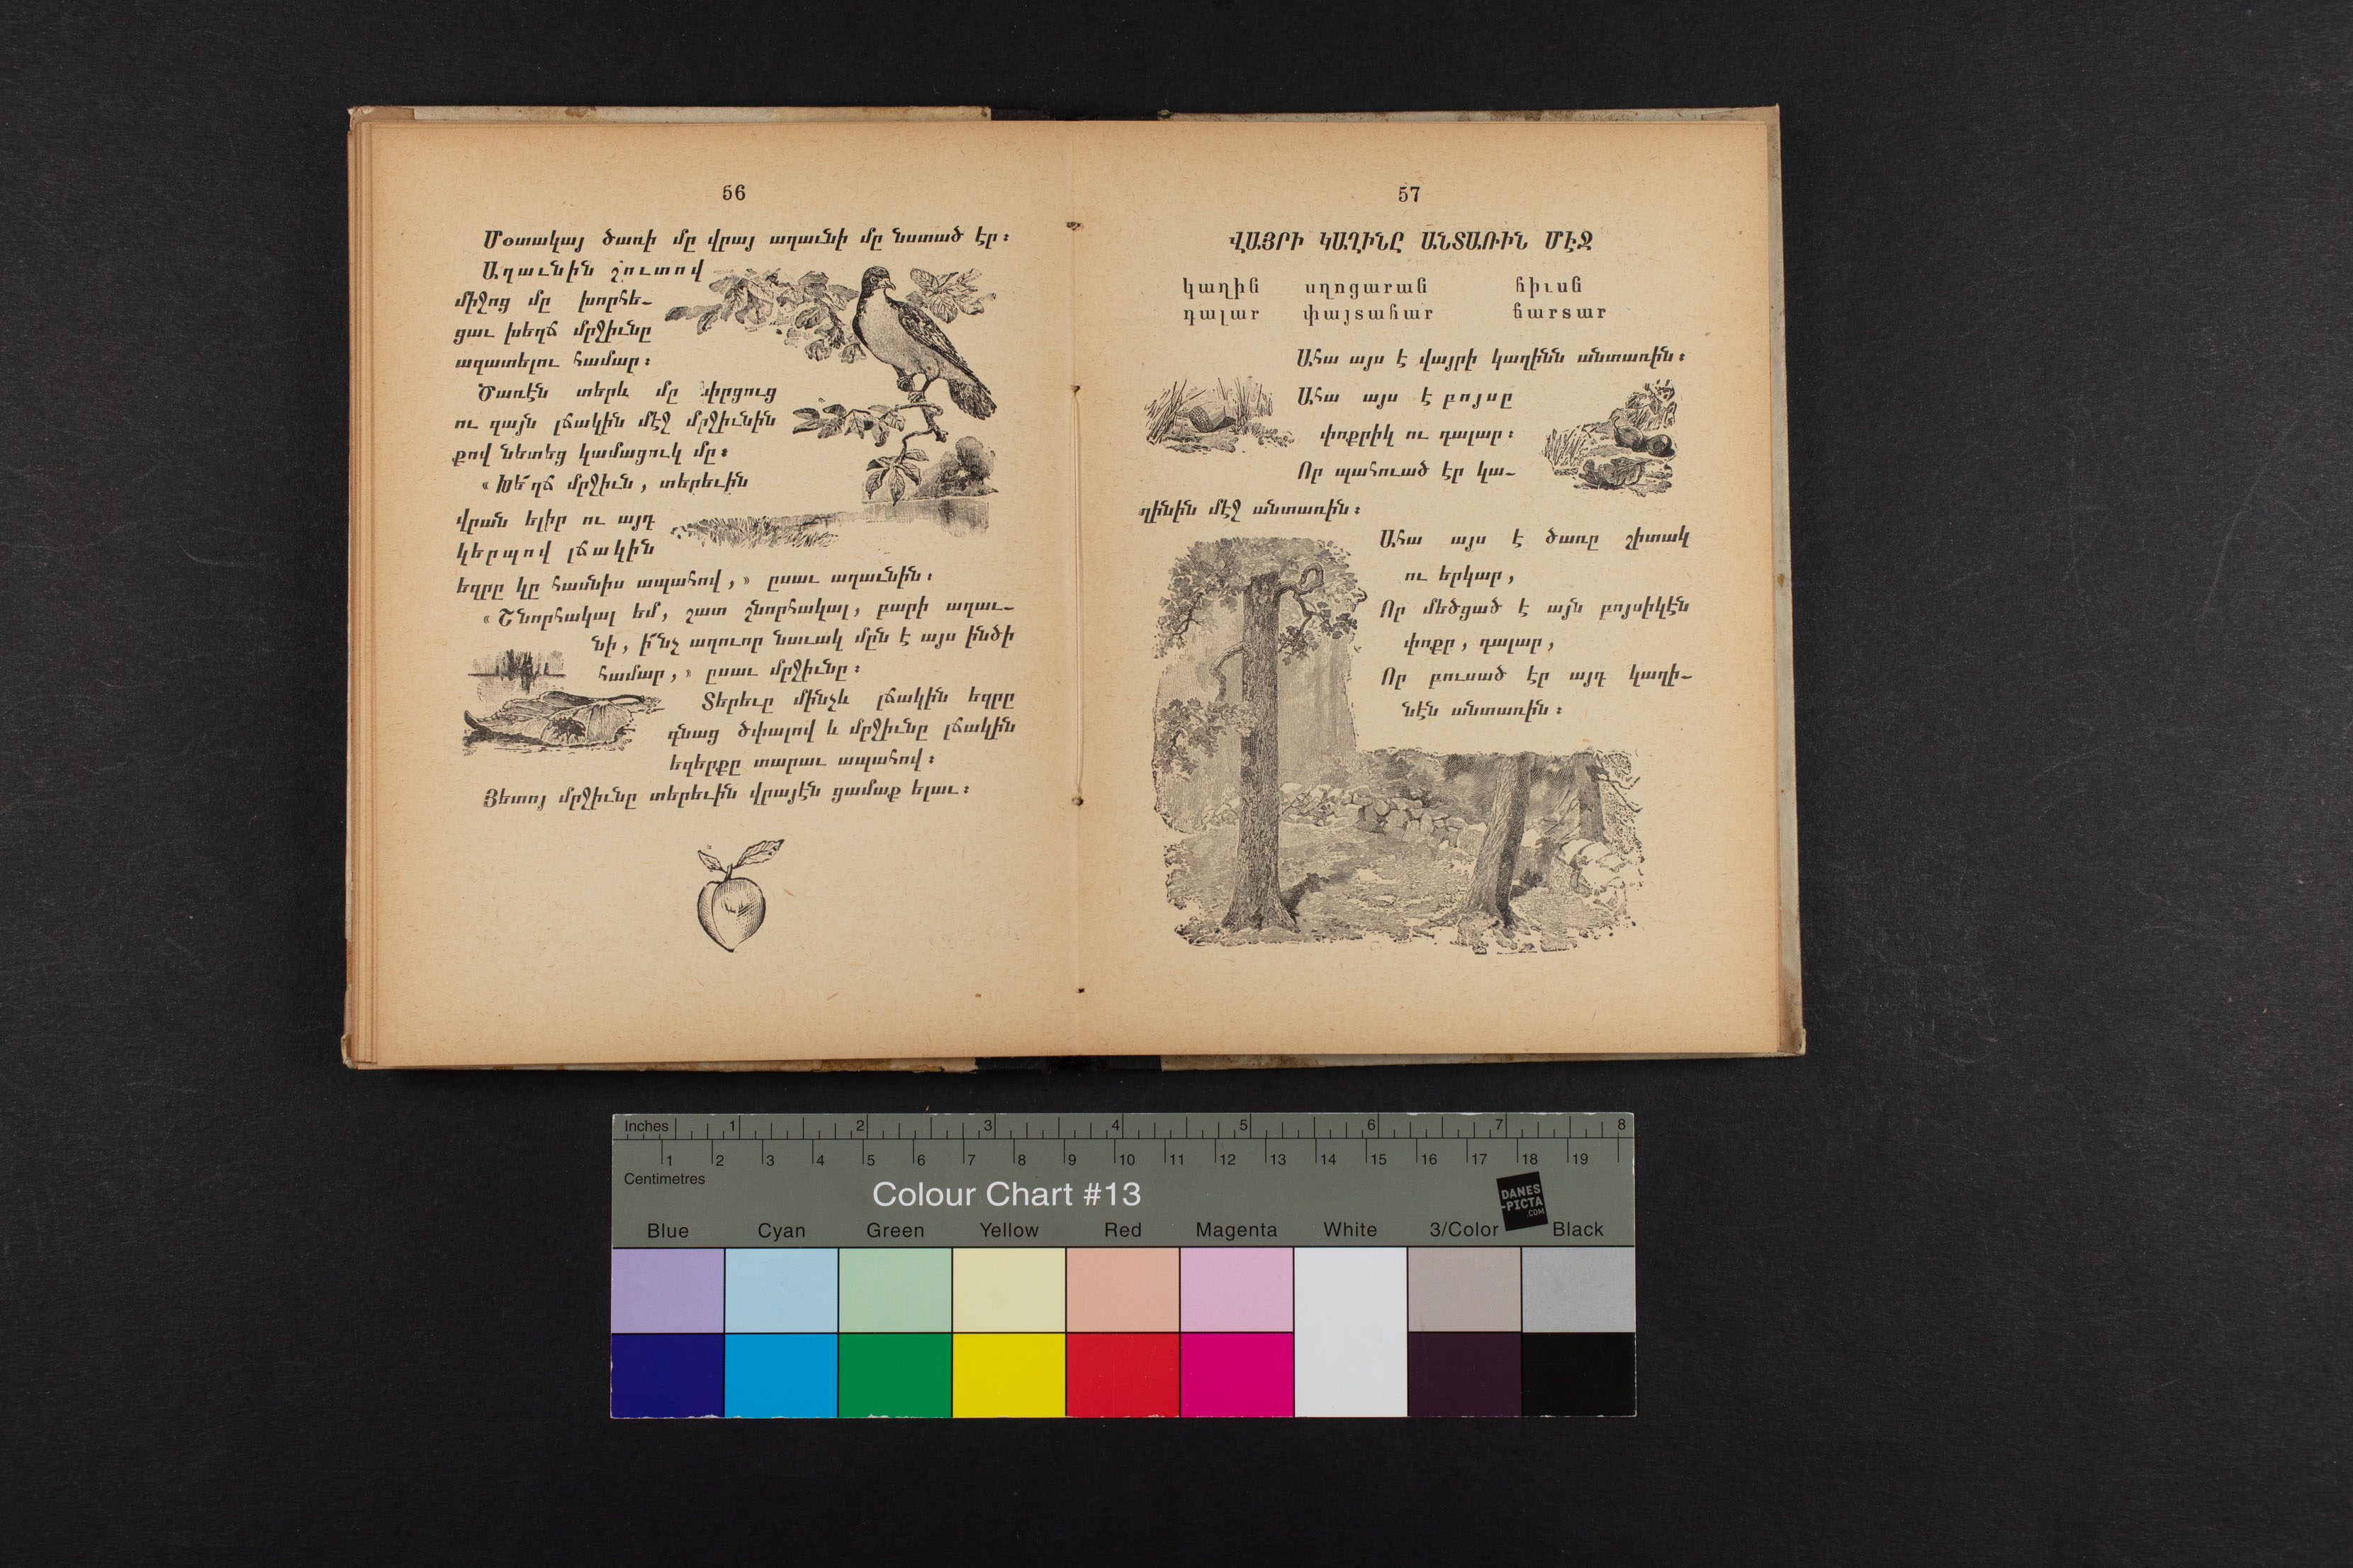 56
Մօտակայ ծառի մը վրայ աղաւնի մը նստած էր։
Աղաւնին շուտով
միջոց մը խորհե-
ցաւ խեղճ մրջիւնը
ազատելու համար։
Ծառէն տերև մը փրցուց
ու զայն լճակին մէջ մրջիւնին
քով նետեց կամացուկ մը։
«Խե՜ղճ մրջիւն, տերեւին
վրան ելիր ու այդ
կերպով լճակին
եզրը կը հասնիս ապահով,» ըսաւ աղաւնին։
«Շնորհակալ եմ, շատ շնորհակալ, բարի աղաւ-
նի, ի՜նչ աղուոր նաւակ մըն է այս ինծի
համար,» ըսաւ մրջիւնը։
Տերեւը մինչև լճակին եզրը
գնաց ծփալով և մրջիւնը լճակին
եզերքը տարաւ ապահով։
Յետոյ մրջիւնը տերեւին վրայէն ցամաք ելաւ։
57
ՎԱՅՐԻ ԿԱՂԻՆԸ ԱՆՏԱՌԻՆ ՄԷՋ
կաղին սղոցարան հիւսն
դալար փայտահար ճարտար
Ահա այս է վայրի կաղինն անտառին։
Ահա այս է բոյսը
փոքրիկ ու դալար։
Որ պահուած էր կա-
ղինին մէջ անտառին։
Ահա այս է ծառը շիտակ
ու երկար,
Որ մեծցած է այն բոյսիկէն
փոքր, դալար,
Որ բուսած էր այդ կաղի-
նէն անտառին։
Inches 1 2 3 4 5 6 7 8
1 2 3 4 5 6 7 8 9 10 11 12 13 14 15 16 17 18 19
Centimetres
Colour Chart #13
DANES
-PICTA
.COM
Blue Cyan Green Yellow Red Magenta White 3/Color Black